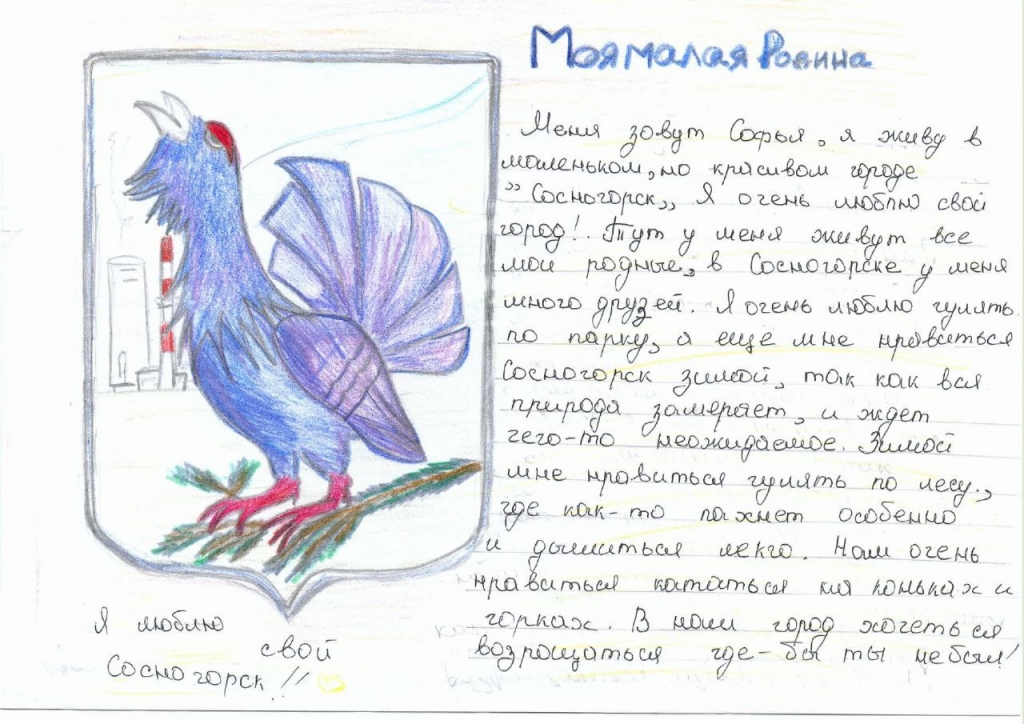 Моя малая Родина
Меня зовут Софья, я живу в
маленьком, но красивом городе
„Сосногорск„ Я очень люблю свой
город! Тут у меня живут все
мои родные, в Сосногорске у меня
много друзей. Я очень люблю гулять
по парку, а еще мне нравиться
Сосногорск зимой, так как вся
природа замерает, и ждет
чего-то неожидаемое. Зимой
мне нравиться гулять по лесу.,
где как-то пахнет особенно
и дышиться лекго. Нам очень
нравиться кататься на коньках и
горках. В наш город хочеться
возрощаться где-бы ты не был!
Я люблю
свой
Сосногорск!!